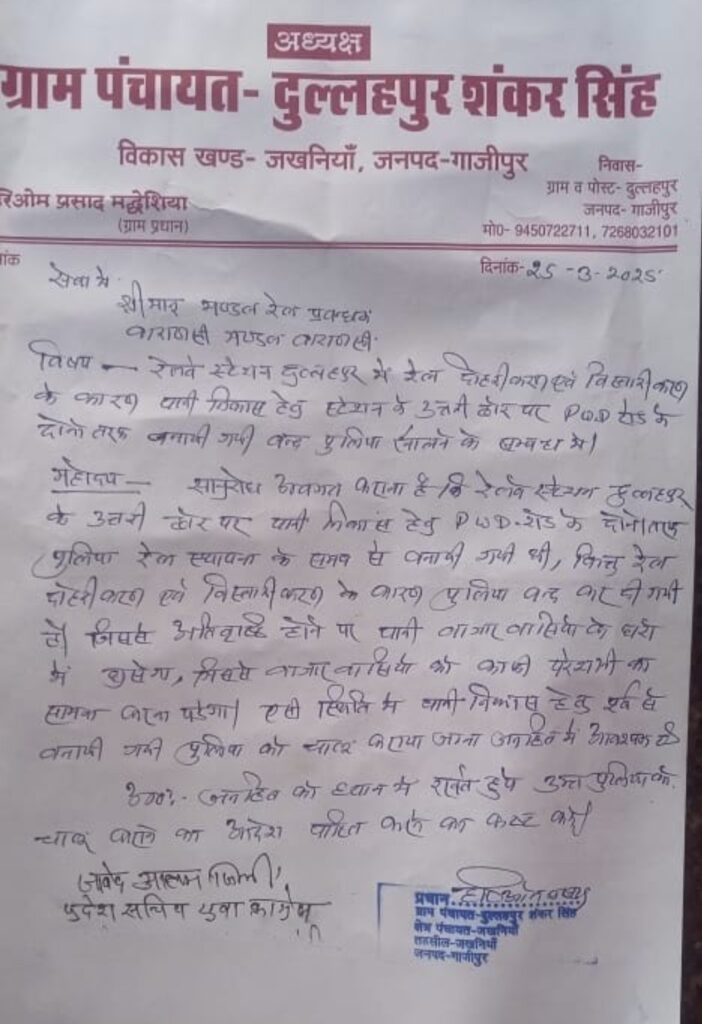 अध्यक्ष
ग्राम पंचायत- दुल्लहपुर शंकर सिंह
विकास खण्ड- जखनियाँ, जनपद-गाजीपुर
निवास-
ग्राम व पोस्ट- दुल्लहपुर
जनपद- गाजीपुर
मो0- 9450722711, 7268032101
रिओम प्रसाद मद्धेशिया
(ग्राम प्रधान)
ांक
दिनांक- 25-3-2025
सेवा में
श्रीमान् मण्डल रेल प्रबन्धक
वाराणसी मण्डल वाराणसी
विषय — रेलवे स्टेशन दुल्लहपुर में रेल दोहरीकरण एवं विस्तारीकरण
के कारण पानी निकास हेतु स्टेशन के उत्तरी छोर पर PWD रोड के
दोनो तरफ बनायी गयी बन्द पुलिया खोलने के सम्बन्ध में।
महोदय — सानुरोध अवगत कराना है कि रेलवे स्टेशन दुल्लहपुर
के उत्तरी छोर पर पानी निकास हेतु PWD रोड के दोनो तरफ
पुलिया रेल स्थापना के समय से बनायी गयी थी, किन्तु रेल
दोहरीकरण एवं विस्तारीकरण के कारण पुलिया बन्द कर दी गयी
है। जिससे अतिवृष्टि होने पर पानी बाजार वासियो के घरो
में घुसेगा, जिससे बाजार वासियो को काफी परेशानी का
सामना करना पडेगा। एसी स्थिति में पानी निकास हेतु पूर्व से
बनायी गयी पुलिया को चालू कराया जाना जनहित में आवश्यक है
अतः- जनहित को ध्यान मे रखते हुये उक्त पुलिया को
चालू कराने का आदेश पारित करने का कष्ट करें।
जावेद आलम
प्रदेश सचिव युवा कांग्रेस
प्रधान
ग्राम पंचायत-दुल्लहपुर शंकर सिंह
क्षेत्र पंचायत-जखनियाँ
तहसील-जखनियाँ
जनपद-गाजीपुर